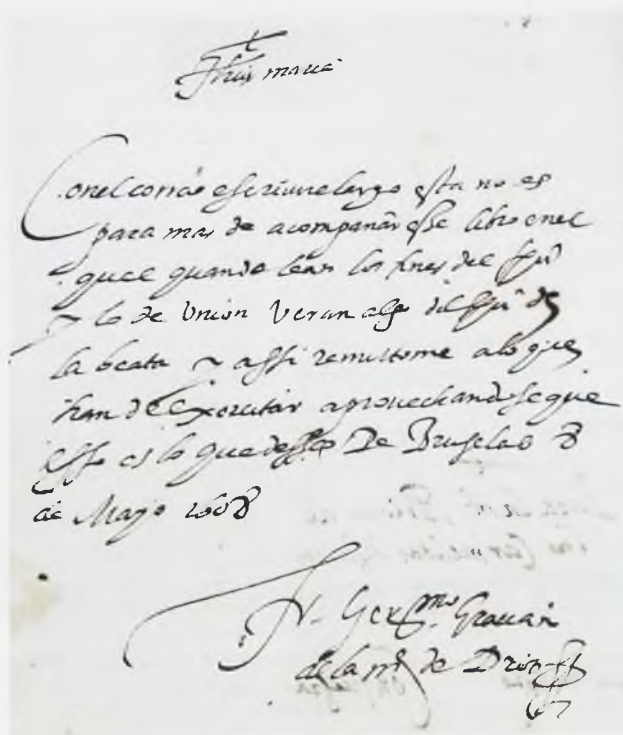 Jhus maria
Con el correo escriui largo esta no es
para mas de acompañar esse libro en el
qual quando lean los fines del spu
y lo de Vnion Veran algo del spu de
la beata y assi remittome a lo que
han de Exercitar aprouechandose que
esso es lo que desseo De Bruselas 8
de Mayo 1608
Fr. Germo Gracian
de la Me de Dios